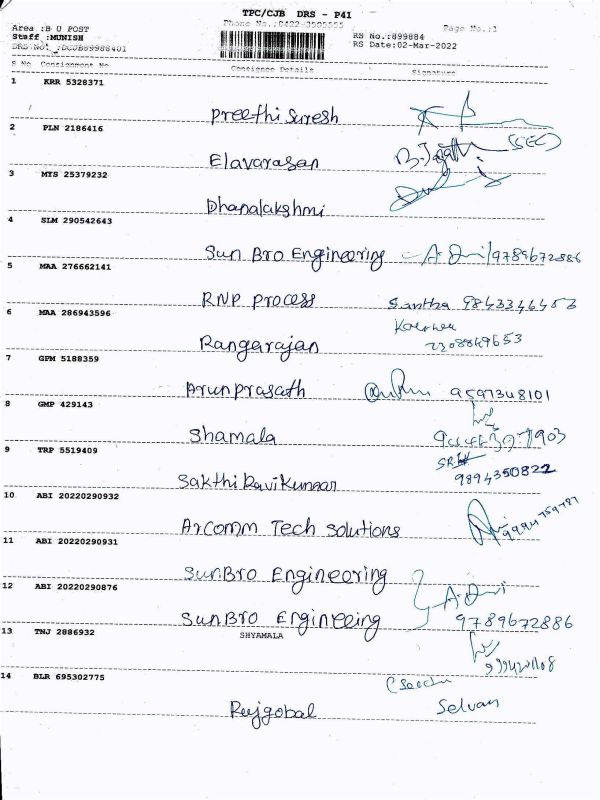 TPC/CJB DRS - P4I
Area :B U POST
Phone No.:0422-3505555
Page No.:1
Staff :MUNISH
RS No.:899884
DRS No. :DCJB89988401
RS Date:02-Mar-2022
S No Consignment No Consignee Details Signature
1 KRR 5328371
Preethi Suresh
2 PLN 2186416
Elavarasan (SEC)
3 MTS 25379232
Dhanalakshmi
4 SLM 290542643
Sun Bro Engineering 9789672886
5 MAA 276662141
RNP Process Santha 9843346453
6 MAA 286943596
Rangarajan
7 GPM 5188359
Arunprasath 9597348101
8 GMP 429143
Shamala
9 TRP 5519409
Sakthi Ravikumaar 9894350822
10 ABI 20220290932
Arcomm Tech Solutions
11 ABI 20220290931
SunBro Engineering
12 ABI 20220290876
SunBro Engineeing 9789672886
13 TNJ 2886932
SHYAMALA
14 BLR 695302775
Rejgobal Selvan